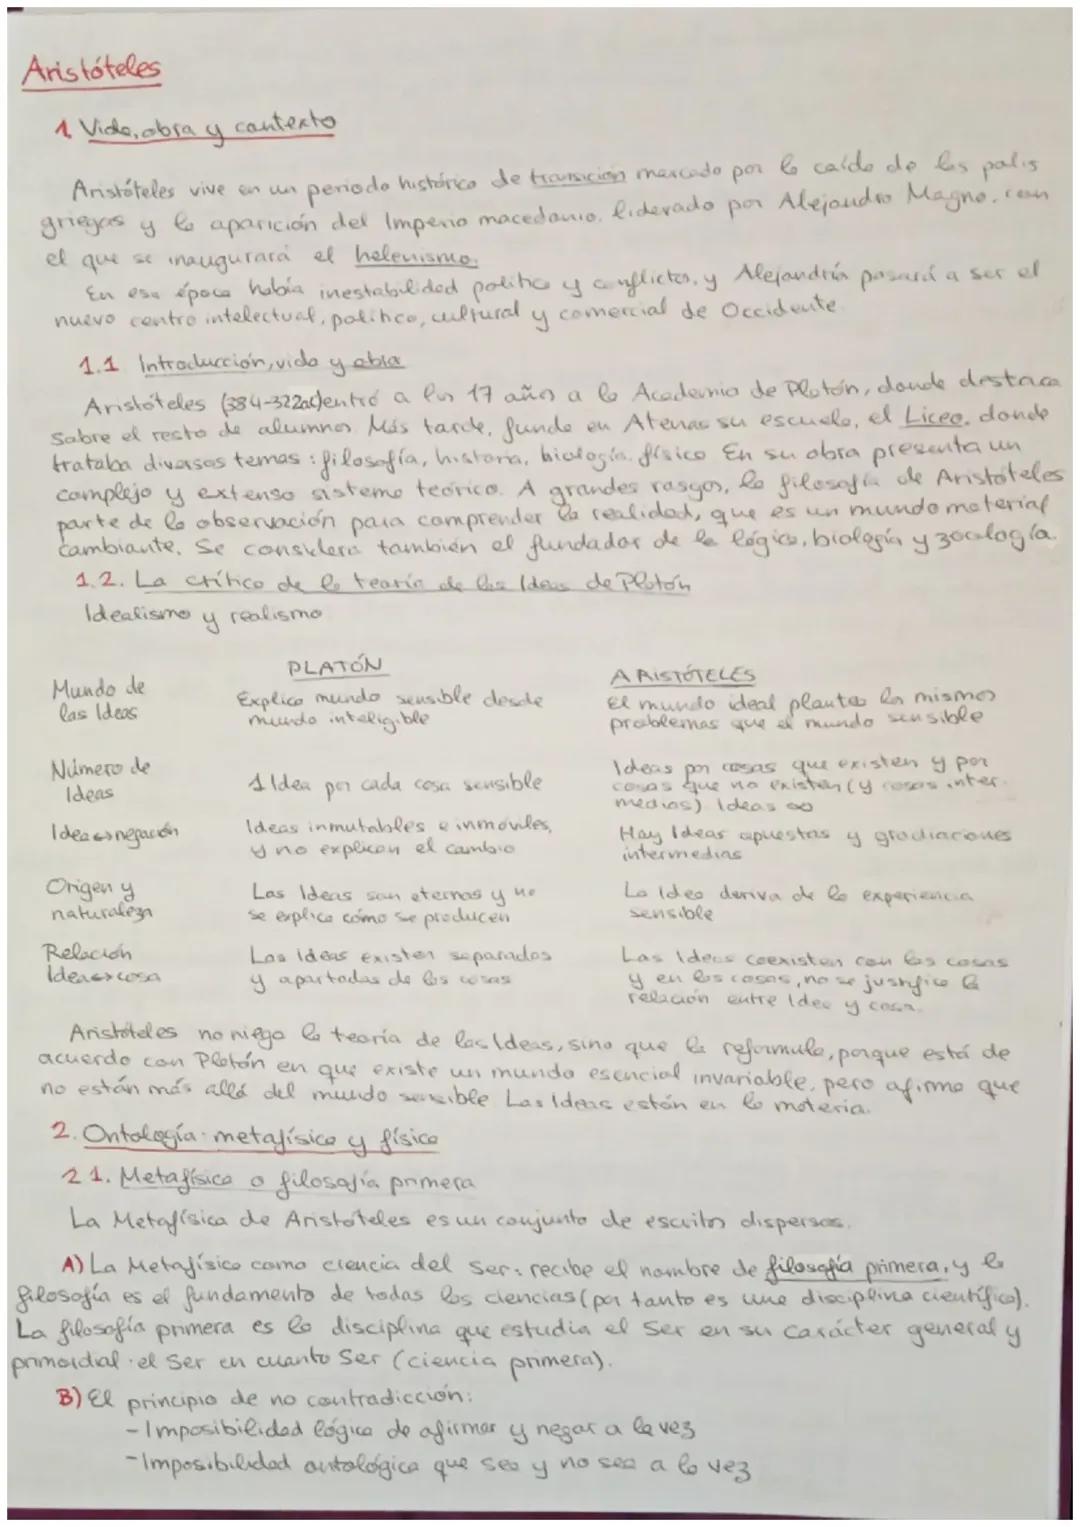 Aristóteles
1. Vida, obra y contexto
Aristóteles vive en un periodo histórico de transición marcado por la caída de las polis
griegas y la aparición del Imperio macedonio, liderado por Alejandro Magno, con
el que se inaugurará el helenismo.
En esa época había inestabilidad política y conflictos, y Alejandría pasará a ser el
nuevo centro intelectual, político, cultural y comercial de Occidente.
1.1 Introducción, vida y obra
Aristóteles (384-322ac) entró a los 17 años a la Academia de Platón, donde destaca
sobre el resto de alumnos. Más tarde, funda en Atenas su escuela, el Liceo, donde
trataba diversos temas: filosofía, historia, biología, física. En su obra presenta un
complejo y extenso sistema teórico. A grandes rasgos, la filosofía de Aristóteles
parte de la observación para comprender la realidad, que es un mundo material
cambiante. Se considera también el fundador de la lógica, biología y zoología.
1.2. La crítica de la teoría de las Ideas de Platón
Idealismo y realismo
PLATÓN
ARISTÓTELES
Mundo de
las Ideas
Explica mundo sensible desde
mundo inteligible
El mundo ideal plantea los mismos
problemas que el mundo sensible
Número de
Ideas
1 Idea por cada cosa sensible
Ideas por cosas que existen y por
cosas que no existen (y cosas inter-
medias). Ideas ∞
Idea↔negación
Ideas inmutables e inmóviles,
y no explican el cambio
Hay Ideas opuestas y gradiaciones
intermedias
Origen y
naturaleza
Las Ideas son eternas y no
se explica cómo se producen
La Idea deriva de la experiencia
sensible
Relación
Idea↔cosa
Las Ideas existen separadas
y apartadas de las cosas
Las Ideas coexisten con las cosas
y en las cosas, no se justifica la
relación entre Idea y cosa.
Aristóteles no niega la teoría de las Ideas, sino que la reformula, porque está de
acuerdo con Platón en que existe un mundo esencial invariable, pero afirma que
no están más allá del mundo sensible. Las Ideas están en la materia.
2. Ontología: metafísica y física
2.1. Metafísica o filosofía primera
La Metafísica de Aristóteles es un conjunto de escritos dispersos.
A) La Metafísica como ciencia del ser: recibe el nombre de filosofía primera, y la
filosofía es el fundamento de todas las ciencias (por tanto es una disciplina científica).
La filosofía primera es la disciplina que estudia el Ser en su carácter general y
primordial: el Ser en cuanto Ser (ciencia primera).
B) El principio de no contradicción:
- Imposibilidad lógica de afirmar y negar a la vez
- Imposibilidad ontológica que sea y no sea a la vez